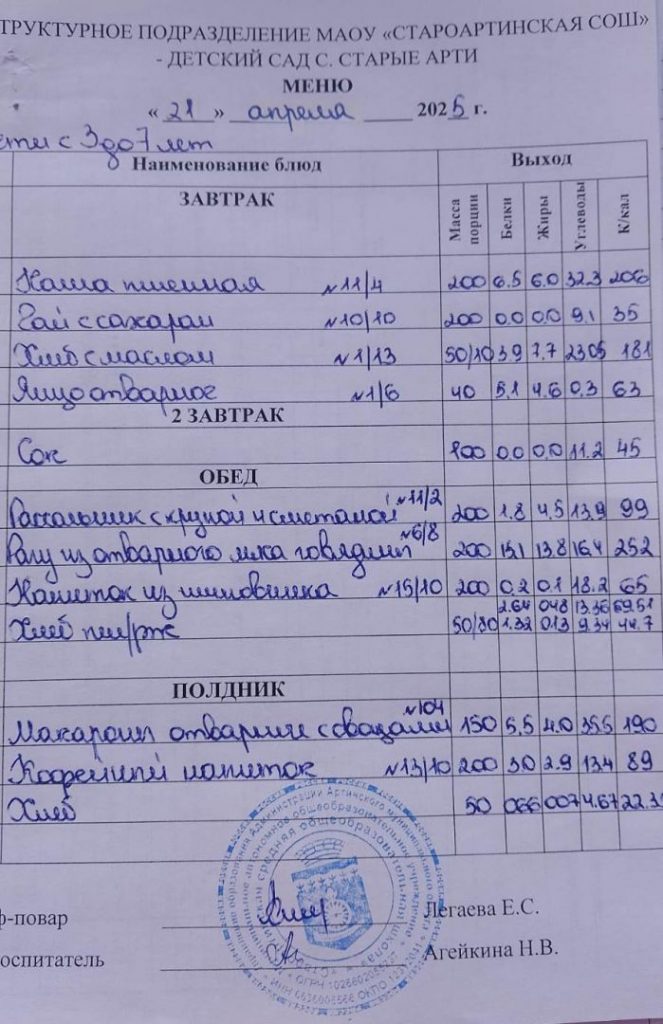 ТРУКТУРНОЕ ПОДРАЗДЕЛЕНИЕ МАОУ «СТАРОАРТИНСКАЯ СОШ»
- ДЕТСКИЙ САД С. СТАРЫЕ АРТИ
МЕНЮ
« 21 » апреля 2025 г.
ети с 3 до 7 лет
Наименование блюд Выход
ЗАВТРАК Масса порции Белки Жиры Углеводы К/кал
Каша пшенная №11/4 200 6.5 6.0 32.3 206
Чай с сахаром №10/10 200 0.0 0.0 9.1 35
Хлеб с маслом №1/13 50/10 3.9 7.7 23.05 181
Яйцо отварное №1/6 40 5.1 4.6 0.3 63
2 ЗАВТРАК
Сок 100 0.0 0.0 11.2 45
ОБЕД
Рассольник с крупой и сметаной №11/2 200 1.8 4.5 13.9 99
Рагу из отварного мяса говядины №6/8 200 13,1 13.8 16,4 252
Напиток из шиповника №15/10 200 0.2 0.1 18.2 65
2.64 0.48 13.36 69.51
Хлеб пш/рж 50/30 1.32 0.13 9.34 44.7
ПОЛДНИК
Макароны отварные с овощами №104 150 5,5 4.0 35.5 190
Кофейный напиток №13/10 200 3.0 2.9 13.4 89
Хлеб 50 0.66 0.07 4.67 22.3
ф-повар Легаева Е.С.
оспитатель Агейкина Н.В.